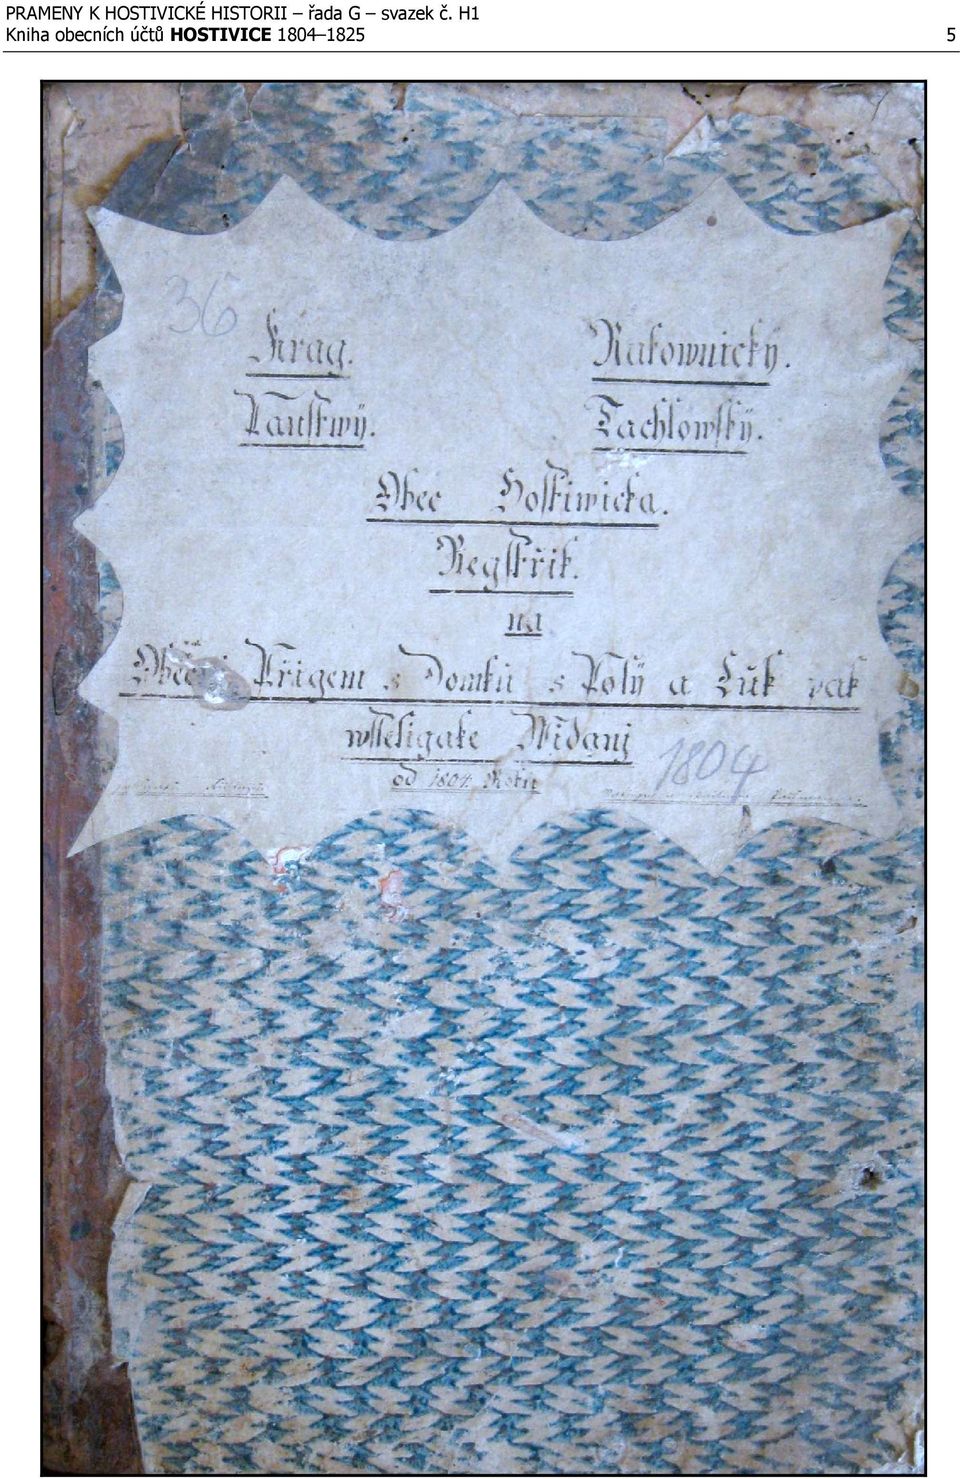 PRAMENY K HOSTIVICKÉ HISTORII – řada G – svazek č. H1
Kniha obecních účtů HOSTIVICE 1804–1825 5
36
Krag. Rakownický.
Panstwÿ. Tachlowskÿ.
Obec Hostiwicka.
Regstřik.
na
Přigem s Domků s Polÿ a Luk pak
wsseligake Widanj
od 1804 Roku
1804